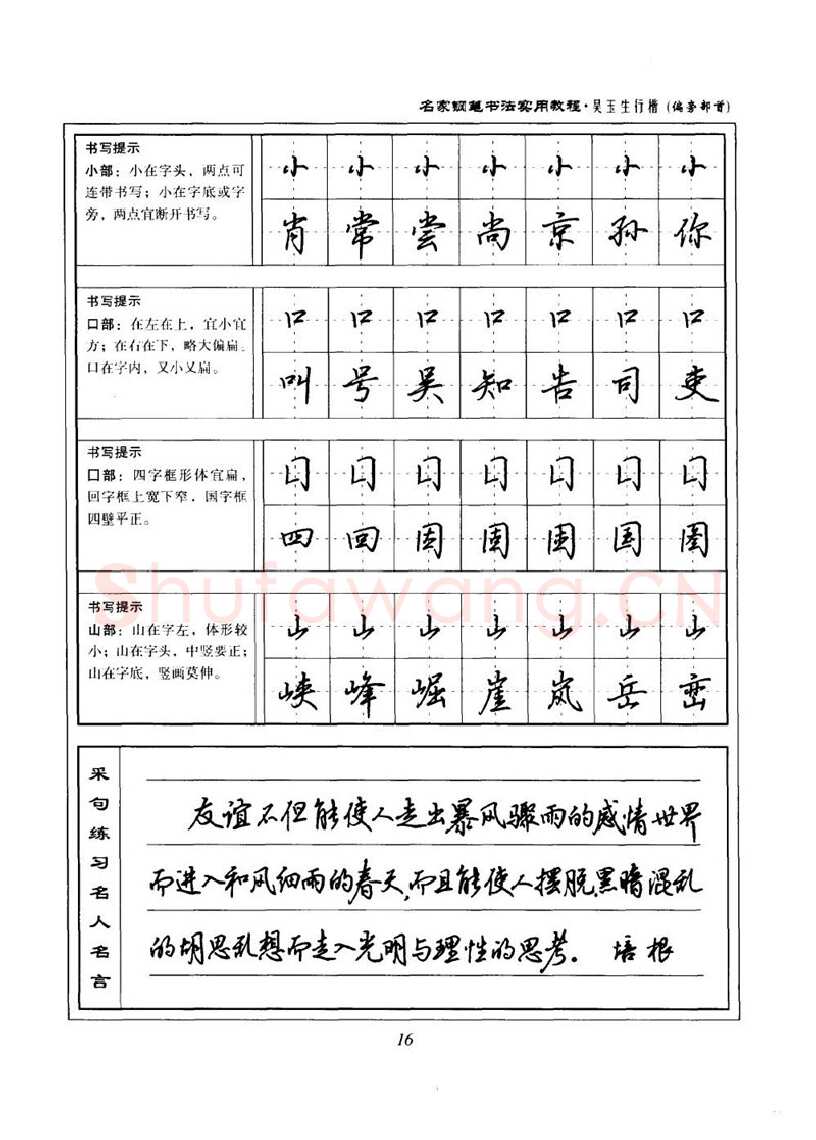 名家钢笔书法实用教程·吴玉生行楷（偏旁部首）
书写提示
小部：小在字头，两点可
连带书写；小在字底或字
旁，两点宜断开书写。
小 小 小 小 小 小 小
肖 常 尝 尚 京 孙 你
书写提示
口部：在左在上，宜小宜
方；在右在下，略大偏扁。
口在字内，又小又扁。
口 口 口 口 口 口 口
叫 号 吴 知 告 司 吏
书写提示
囗部：四字框形体宜扁，
回字框上宽下窄，国字框
四壁平正。
囗 囗 囗 囗 囗 囗 囗
四 回 固 圃 围 国 圈
Shufawang.CN
书写提示
山部：山在字左，体形较
小；山在字头，中竖要正；
山在字底，竖画莫伸。
山 山 山 山 山 山 山
峡 峰 崛 崖 岚 岳 峦
采句练习名人名言
友谊不但能使人走出暴风骤雨的感情世界
而进入和风细雨的春天，而且能使人摆脱黑暗混乱
的胡思乱想而走入光明与理性的思考。 培根
16